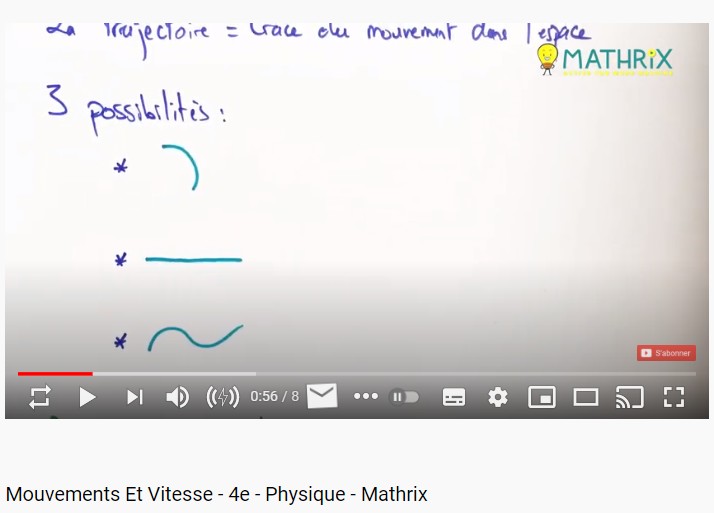 La Trajectoire = trace du mouvement dans l'espace
MATHRiX
3 possibilités :
*
*
*
S'abonner
0:56 / 8
Mouvements Et Vitesse - 4e - Physique - Mathrix